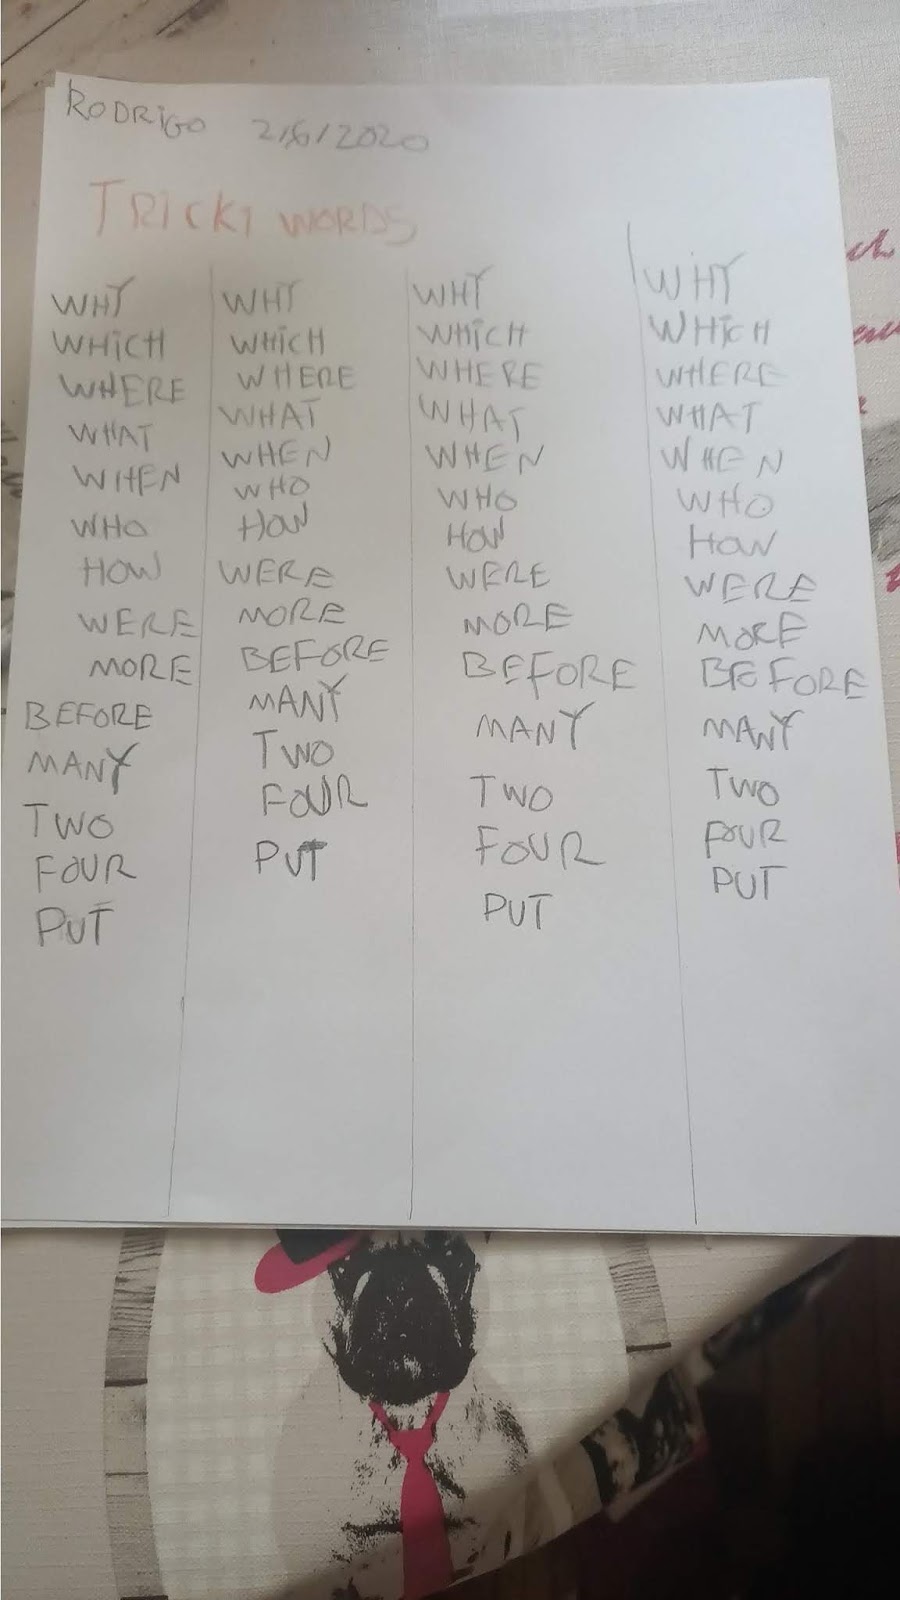 RODRIGO 2/6/2020
TRICKI WORDS
WHY WHY WHY WHY
WHICH WHICH WHICH WHICH
WHERE WHERE WHERE WHERE
WHAT WHAT WHAT WHAT
WHEN WHEN WHEN WHEN
WHO WHO WHO WHO
HOW HOW HOW HOW
WERE WERE WERE WERE
MORE MORE MORE MORE
BEFORE BEFORE BEFORE BEFORE
MANY MANY MANY MANY
TWO TWO TWO TWO
FOUR FOUR FOUR FOUR
PUT PUT PUT PUT